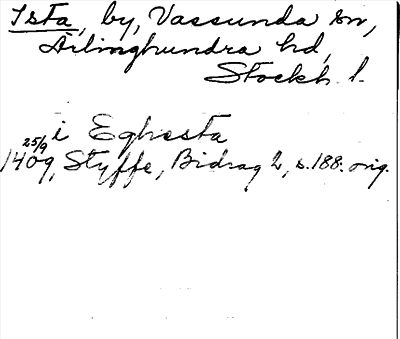 Ista, by, Vassunda sn,
Ärlinghundra hd,
Stockh. l.
i Eghesta
25/9
1409, Styffe, Bidrag 2, s. 188. orig.